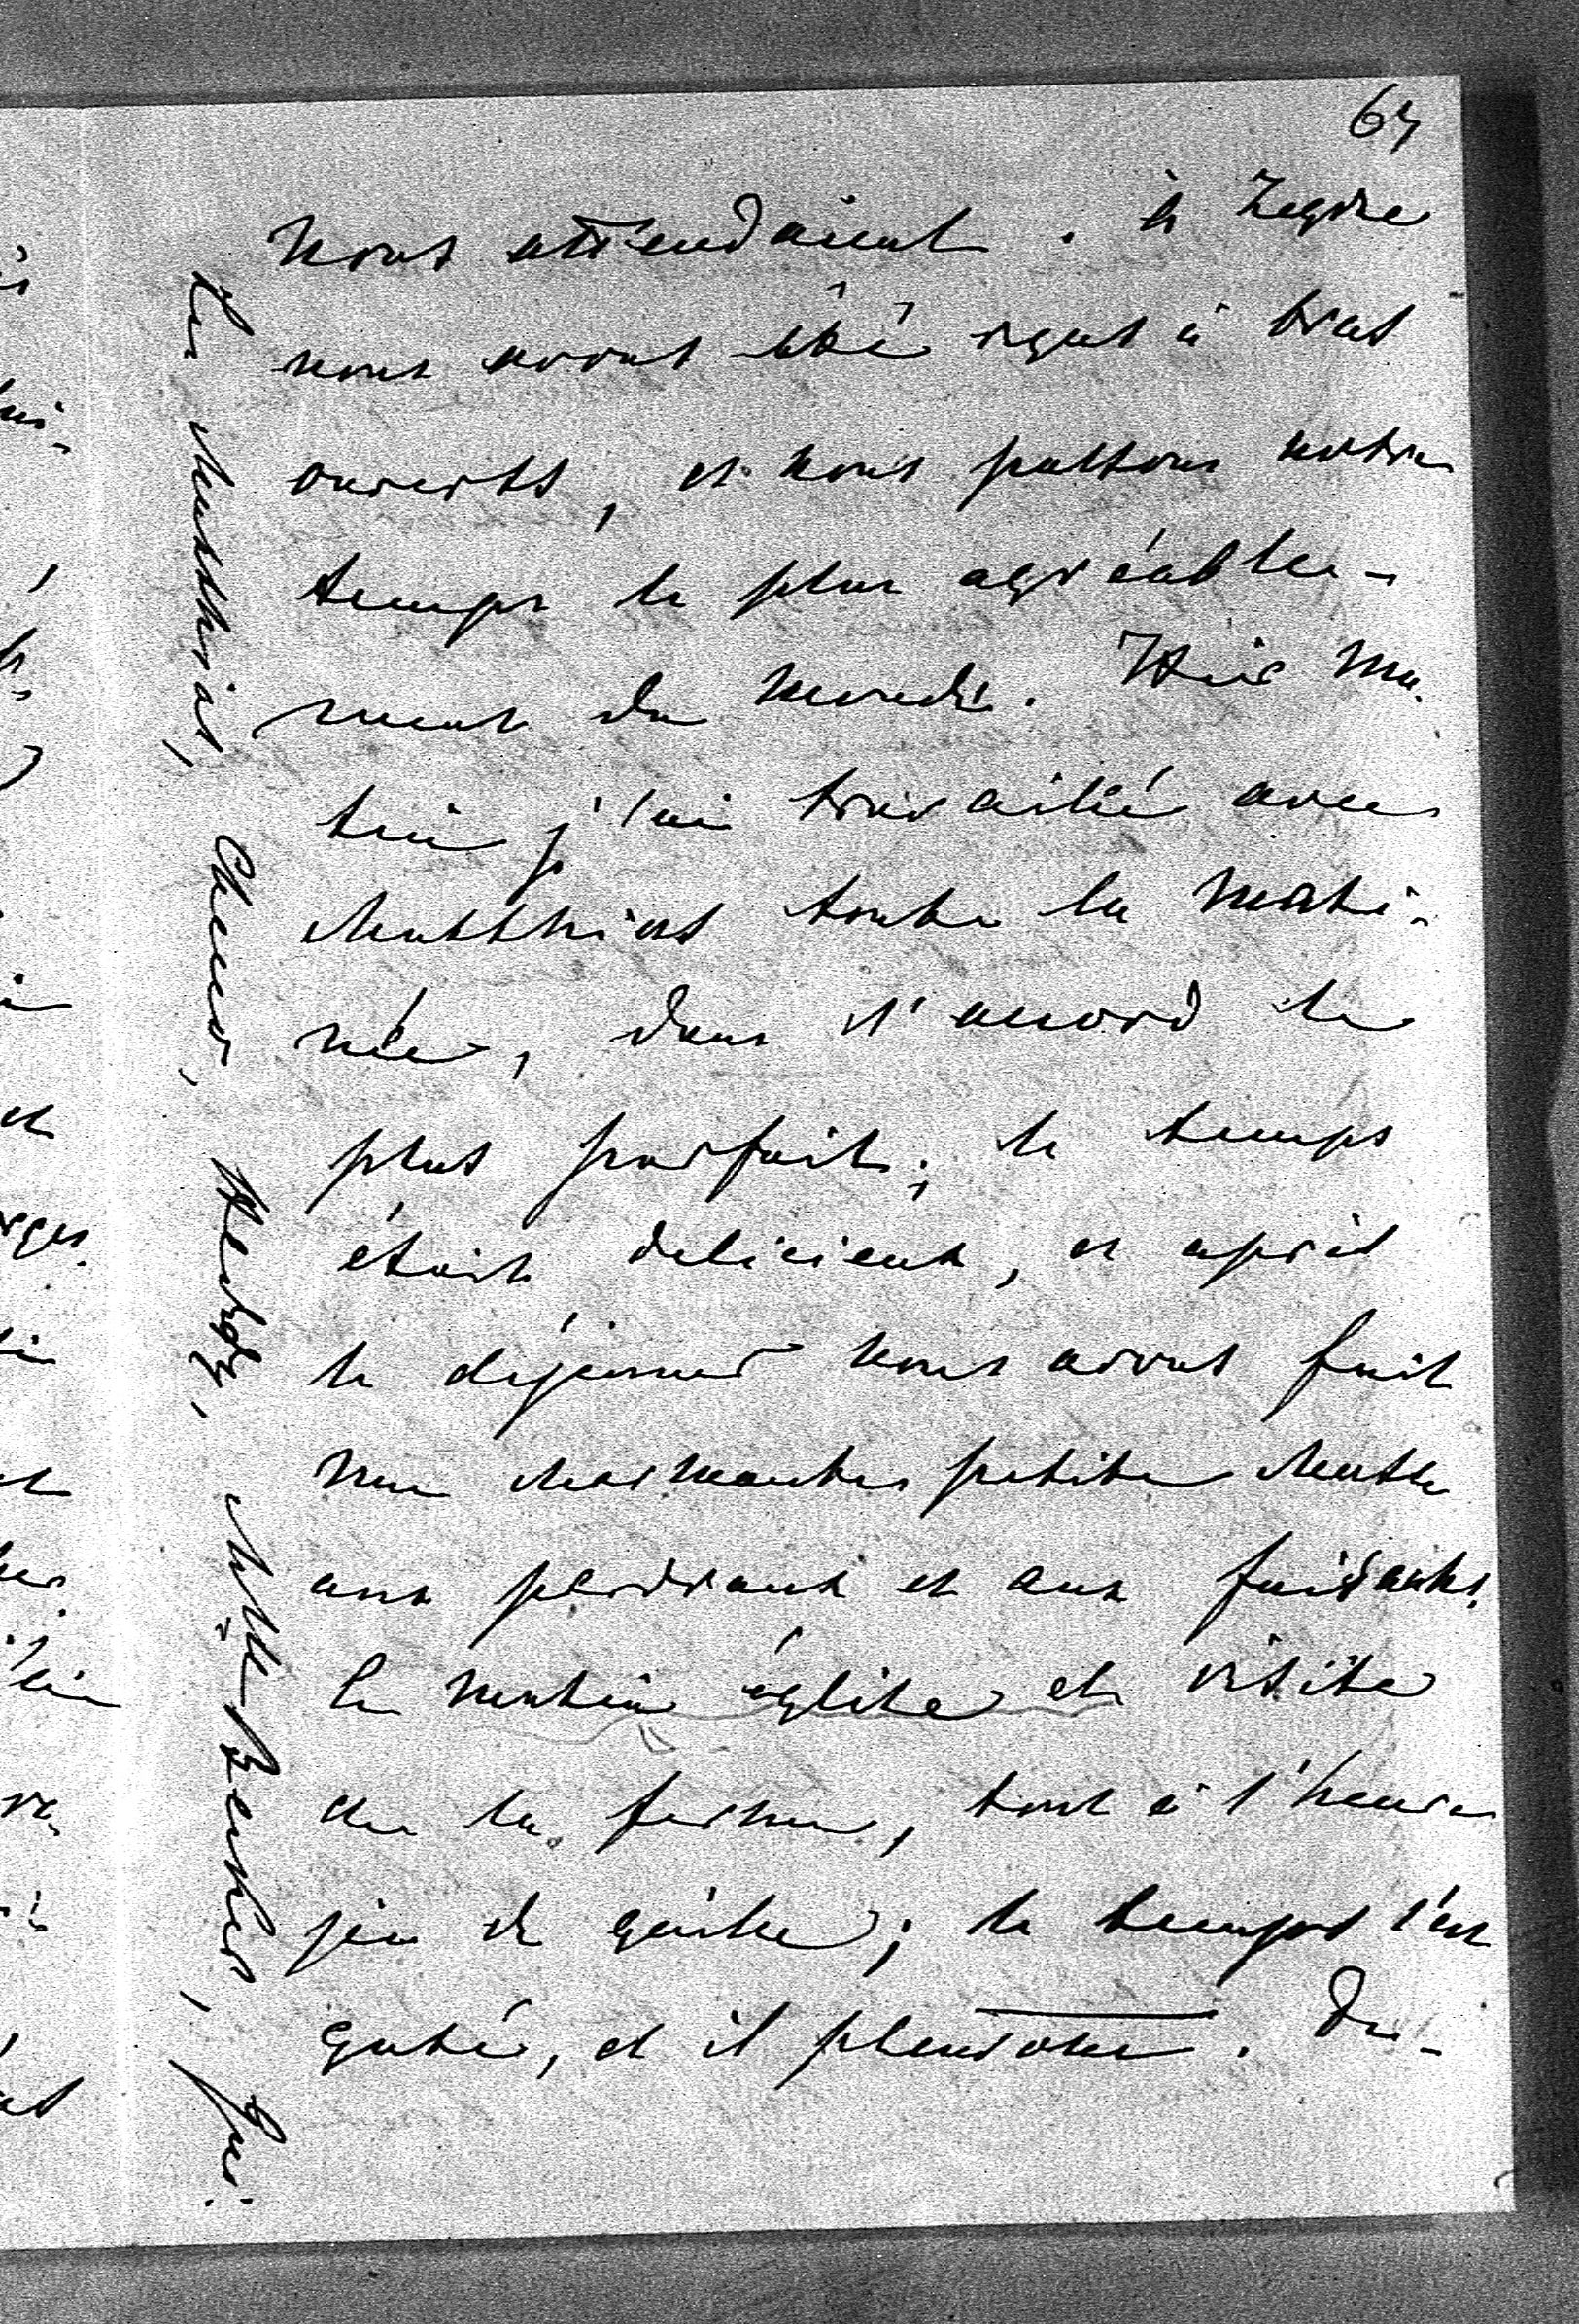 nous attendaient. à Zegrze
nous avons été reçus à bras
ouverts, et nous passons notre
temps le plus agréable-
ment du monde. Hier ma-
tin j'ai travaillé avec
Matthias toute la mati-
née, dans l'accord le
plus parfait; le temps
était delicieux, et après
le déjeuner nous avons fait
une charmante petite chasse
aux perdreaux et aux faisans.
Ce matin église et visite
de la ferme, tout à l'heure
jeu de quille; le temps s'est
gaté, et il pleuvote. De-
Les Matthias,